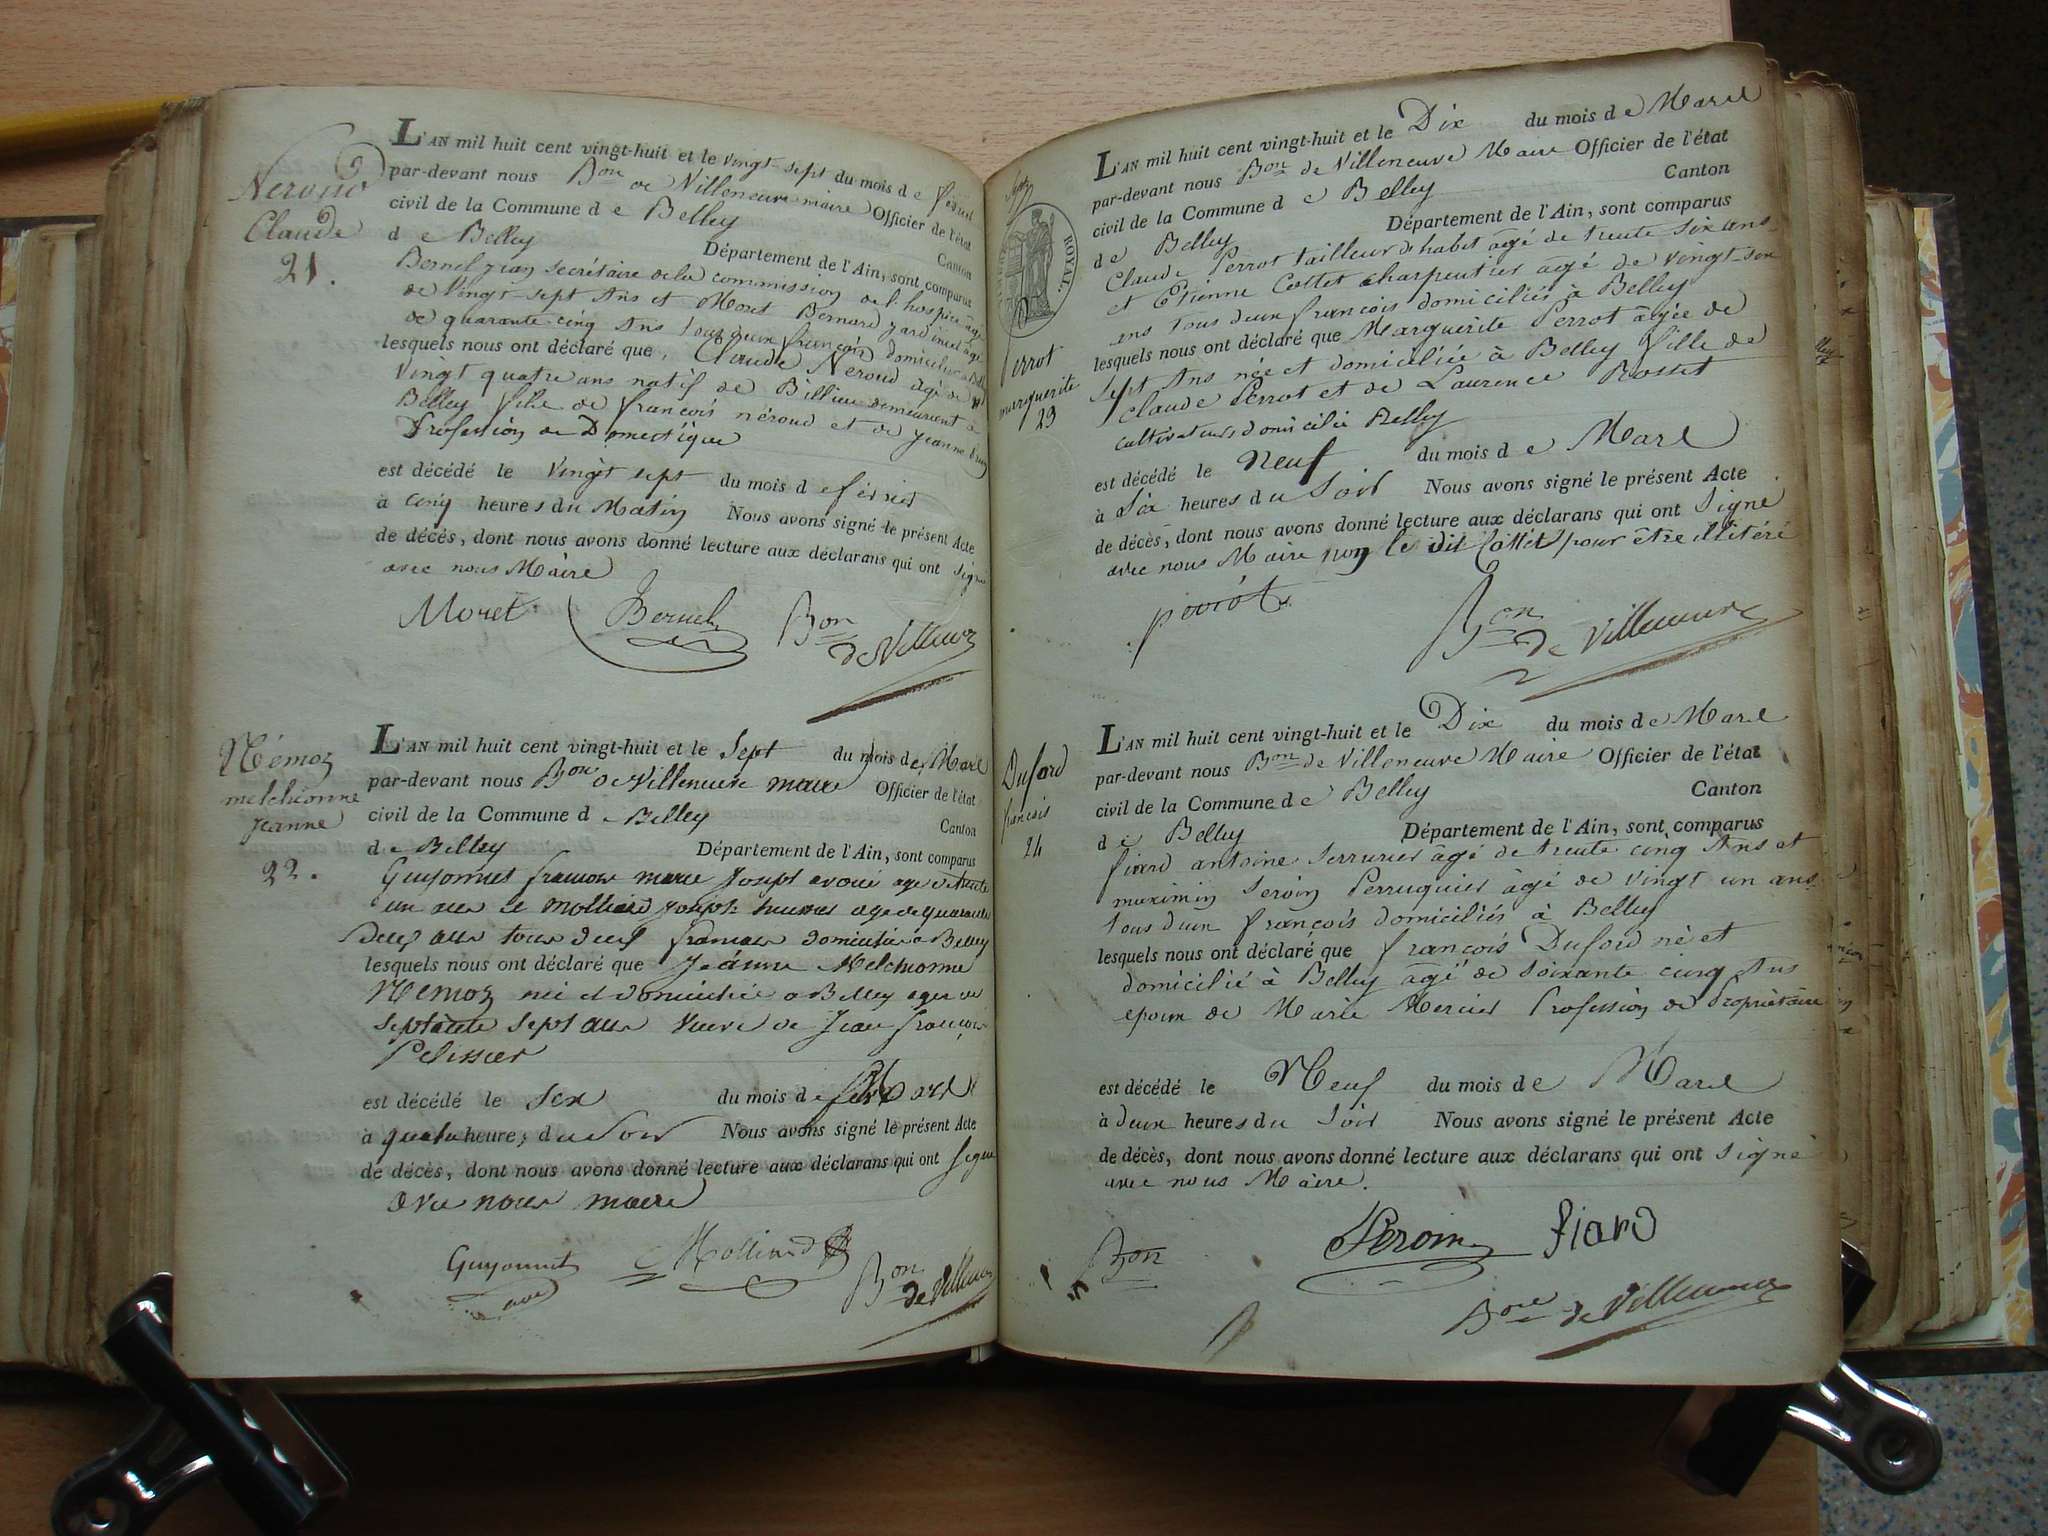 Neroud
Claude
21.
L'AN mil huit cent vingt-huit et le vingt-sept du mois de février
par-devant nous Bon de Villeneuve maire Officier de l'état
civil de la Commune de Belley Canton
de Belley Département de l'Ain, sont comparus
Bernel jean secrétaire de la commission de l'hospice âgé
de vingt-sept Ans et Moret Bernard jardinier âgé
de quarante-cinq Ans tous deux françois domiciliés à
lesquels nous ont déclaré que, Claude Neroud âgé de
vingt quatre ans natif de Billieu demeurant à
Belley fils de françois néroud et de jeanne
Profession de Domestique
est décédé le vingt sept du mois de février
à cinq heures du Matin Nous avons signé le présent Acte
de décès, dont nous avons donné lecture aux déclarans qui ont signé
avec nous Maire
Moret Bernel Bon
de Villeneuve
Némoz
melchionne
jeanne
22.
L'AN mil huit cent vingt-huit et le Sept du mois de Mars
par-devant nous Bon de Villeneuve maire Officier de l'état
civil de la Commune de Belley Canton
de Belley Département de l'Ain, sont comparus
Guyonnet francois marie joseph avoué age de trente
un ans et Molliard joseph huissier age de quarante
deux ans tous deux francais domiciliés a Belley
lesquels nous ont déclaré que Jeanne Melchionne
Nemoz née et domiciliée a Belley agée de
septante sept ans veuve de Jean françois
Pelissier
est décédé le six du mois de Mars
à quatre heures du soir Nous avons signé le présent Acte
de décès, dont nous avons donné lecture aux déclarans qui ont signé
avec nous maire
Guyonnet Molliard Bon
avoué de Villeneuve
ROYAL.
Perrot
marguerite
23
L'AN mil huit cent vingt-huit et le Dix du mois de Mars
par-devant nous Bon de Villeneuve Maire Officier de l'état
civil de la Commune de Belley Canton
de Belley Département de l'Ain, sont comparus
Claude Perrot tailleur d'habit âgé de trente six ans
et Etienne Cottet charpentier âgé de vingt-six
ans tous deux françois domiciliés à Belley
lesquels nous ont déclaré que Marguerite Perrot âgée de
sept Ans née et domiciliée à Belley fille de
Claude Perrot et de Laurence Rosset
cultivateurs domicilié Belley
est décédé le neuf du mois de Mars
à Six heures du soir Nous avons signé le présent Acte
de décès, dont nous avons donné lecture aux déclarans qui ont signé
avec nous Maire non le dit Cottet pour être illitéré
perrot Bon
de Villeneuve
Duford
francois
24
L'AN mil huit cent vingt-huit et le Dix du mois de Mars
par-devant nous Bon de Villeneuve Maire Officier de l'état
civil de la Commune de Belley Canton
de Belley Département de l'Ain, sont comparus
fiard antoine serrurier âgé de trente cinq Ans et
maximin seroin Perruquier âgé de vingt un ans
tous deux françois domiciliés à Belley
lesquels nous ont déclaré que françois Duford né et
domicilié à Belley âgé de soixante cinq Ans
epoux de Marie Mercier Profession de Propriétaire
est décédé le Neuf du mois de Mars
à deux heures du soir Nous avons signé le présent Acte
de décès, dont nous avons donné lecture aux déclarans qui ont signé
avec nous Maire.
Bon Seroin fiard
Bon de Villeneuve